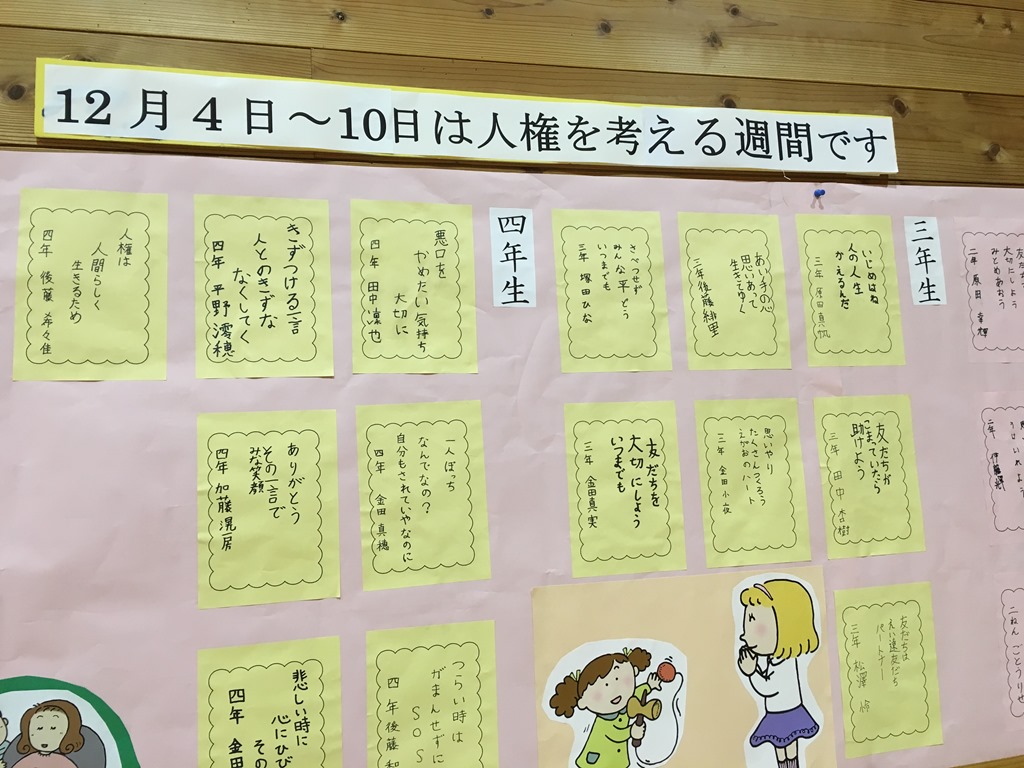 12月4日～10日は人権を考える週間です
三年生
いじめはね
人の人生
かえるんだ
三年 原田真帆
あい手の心
思いあって
生きてゆく
三年 後藤緋里
さべつせず
みんな平どう
いつまでも
三年 塚田ひな
友だちが
こまっていたら
助けよう
三年 田中杏樹
思いやり
たくさんつくろう
えがおのハート
三年 金田小夜
友だちを
大切にしよう
いつまでも
三年 金田真実
友だちは
えい遠友だち
パートナー
三年 松澤怜
四年生
悪口を
やめたい気持ち
大切に
四年 田中凜也
きずつける言
人とのきずな
なくしてく
四年 平野澪穂
人権は
人間らしく
生きるため
四年 後藤希々佳
一人ぼっち
なんでなの？
自分もされていやなのに
四年 金田真穂
ありがとう
その一言で
みな笑顔
四年 加藤滉房
つらい時は
がまんせずに
SOS
四年 後藤和
悲しい時に
心にひび
その
四年 金田
大切にしよう
みとめあおう
二年 原田幸輝
二年 伊藤
二ねん ごとうりせ